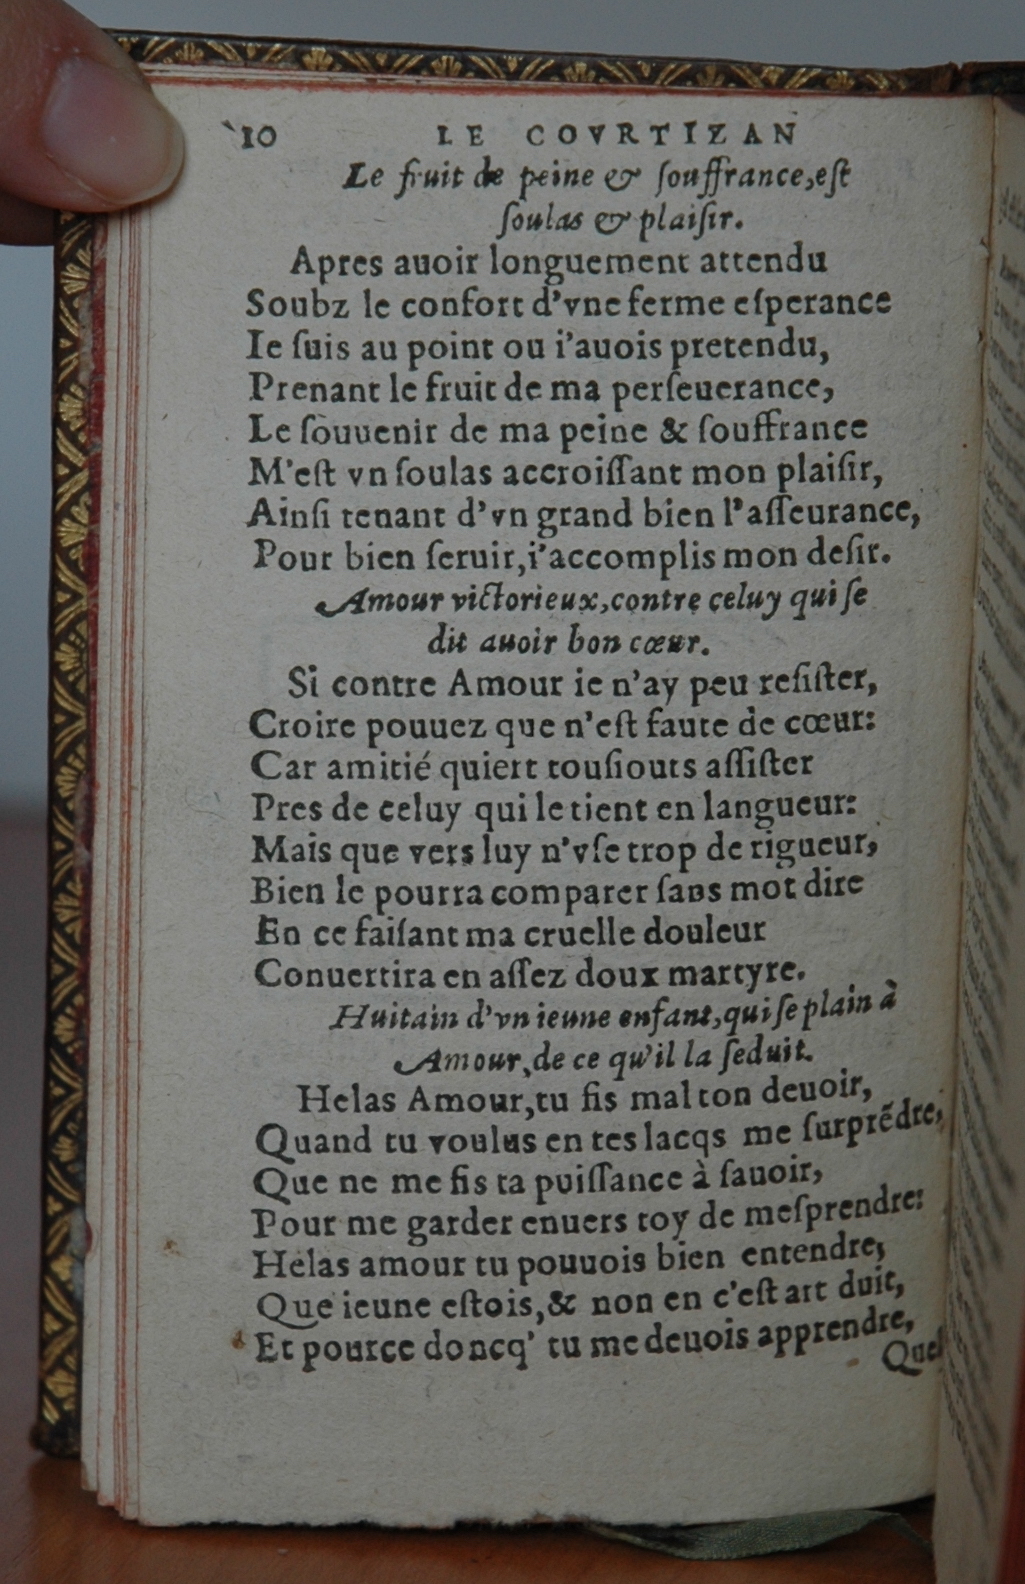 10 LE COVRTIZAN
Le fruit de peine & ſouffrance,eſt
ſoulas & plaiſir.
Apres auoir longuement attendu
Soubz le confort d'vne ferme eſperance
Ie ſuis au point ou i'auois pretendu,
Prenant le fruit de ma perſeuerance,
Le ſouuenir de ma peine & ſouffrance
M'eſt vn ſoulas accroiſſant mon plaiſir,
Ainſi tenant d'vn grand bien l'aſſeurance,
Pour bien ſeruir,i'accomplis mon deſir.
Amour victorieux,contre celuy qui ſe
dit auoir bon cœur.
Si contre Amour ie n'ay peu reſiſter,
Croire pouuez que n'eſt faute de cœur:
Car amitié quiert touſiours aſſiſter
Pres de celuy qui le tient en langueur:
Mais que vers luy n'vſe trop de rigueur,
Bien le pourra comparer ſans mot dire
En ce faiſant ma cruelle douleur
Conuertira en aſſez doux martyre.
Huitain d'vn ieune enfant,qui ſe plain à
Amour,de ce qu'il la ſeduit.
Helas Amour,tu fis mal ton deuoir,
Quand tu voulus en tes lacqs me ſurprẽdre,
Que ne me fis ta puiſſance à ſauoir,
Pour me garder enuers toy de meſprendre:
Helas amour tu pouuois bien entendre,
Que ieune eſtois,& non en c'eſt art duit,
Et pource doncq' tu me deuois apprendre,
Quel